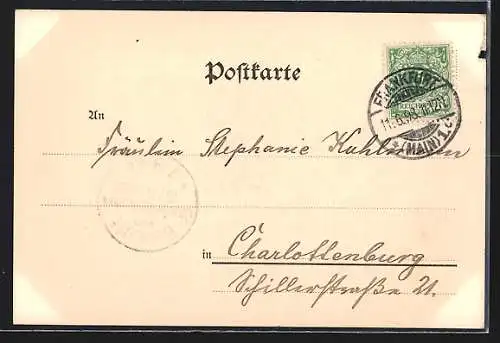 Postkarte
An
Fräulein Stephanie Kuhlmann
in Charlottenburg
Schillerstraße 21.
FRANKFURT
(MAIN) 1.